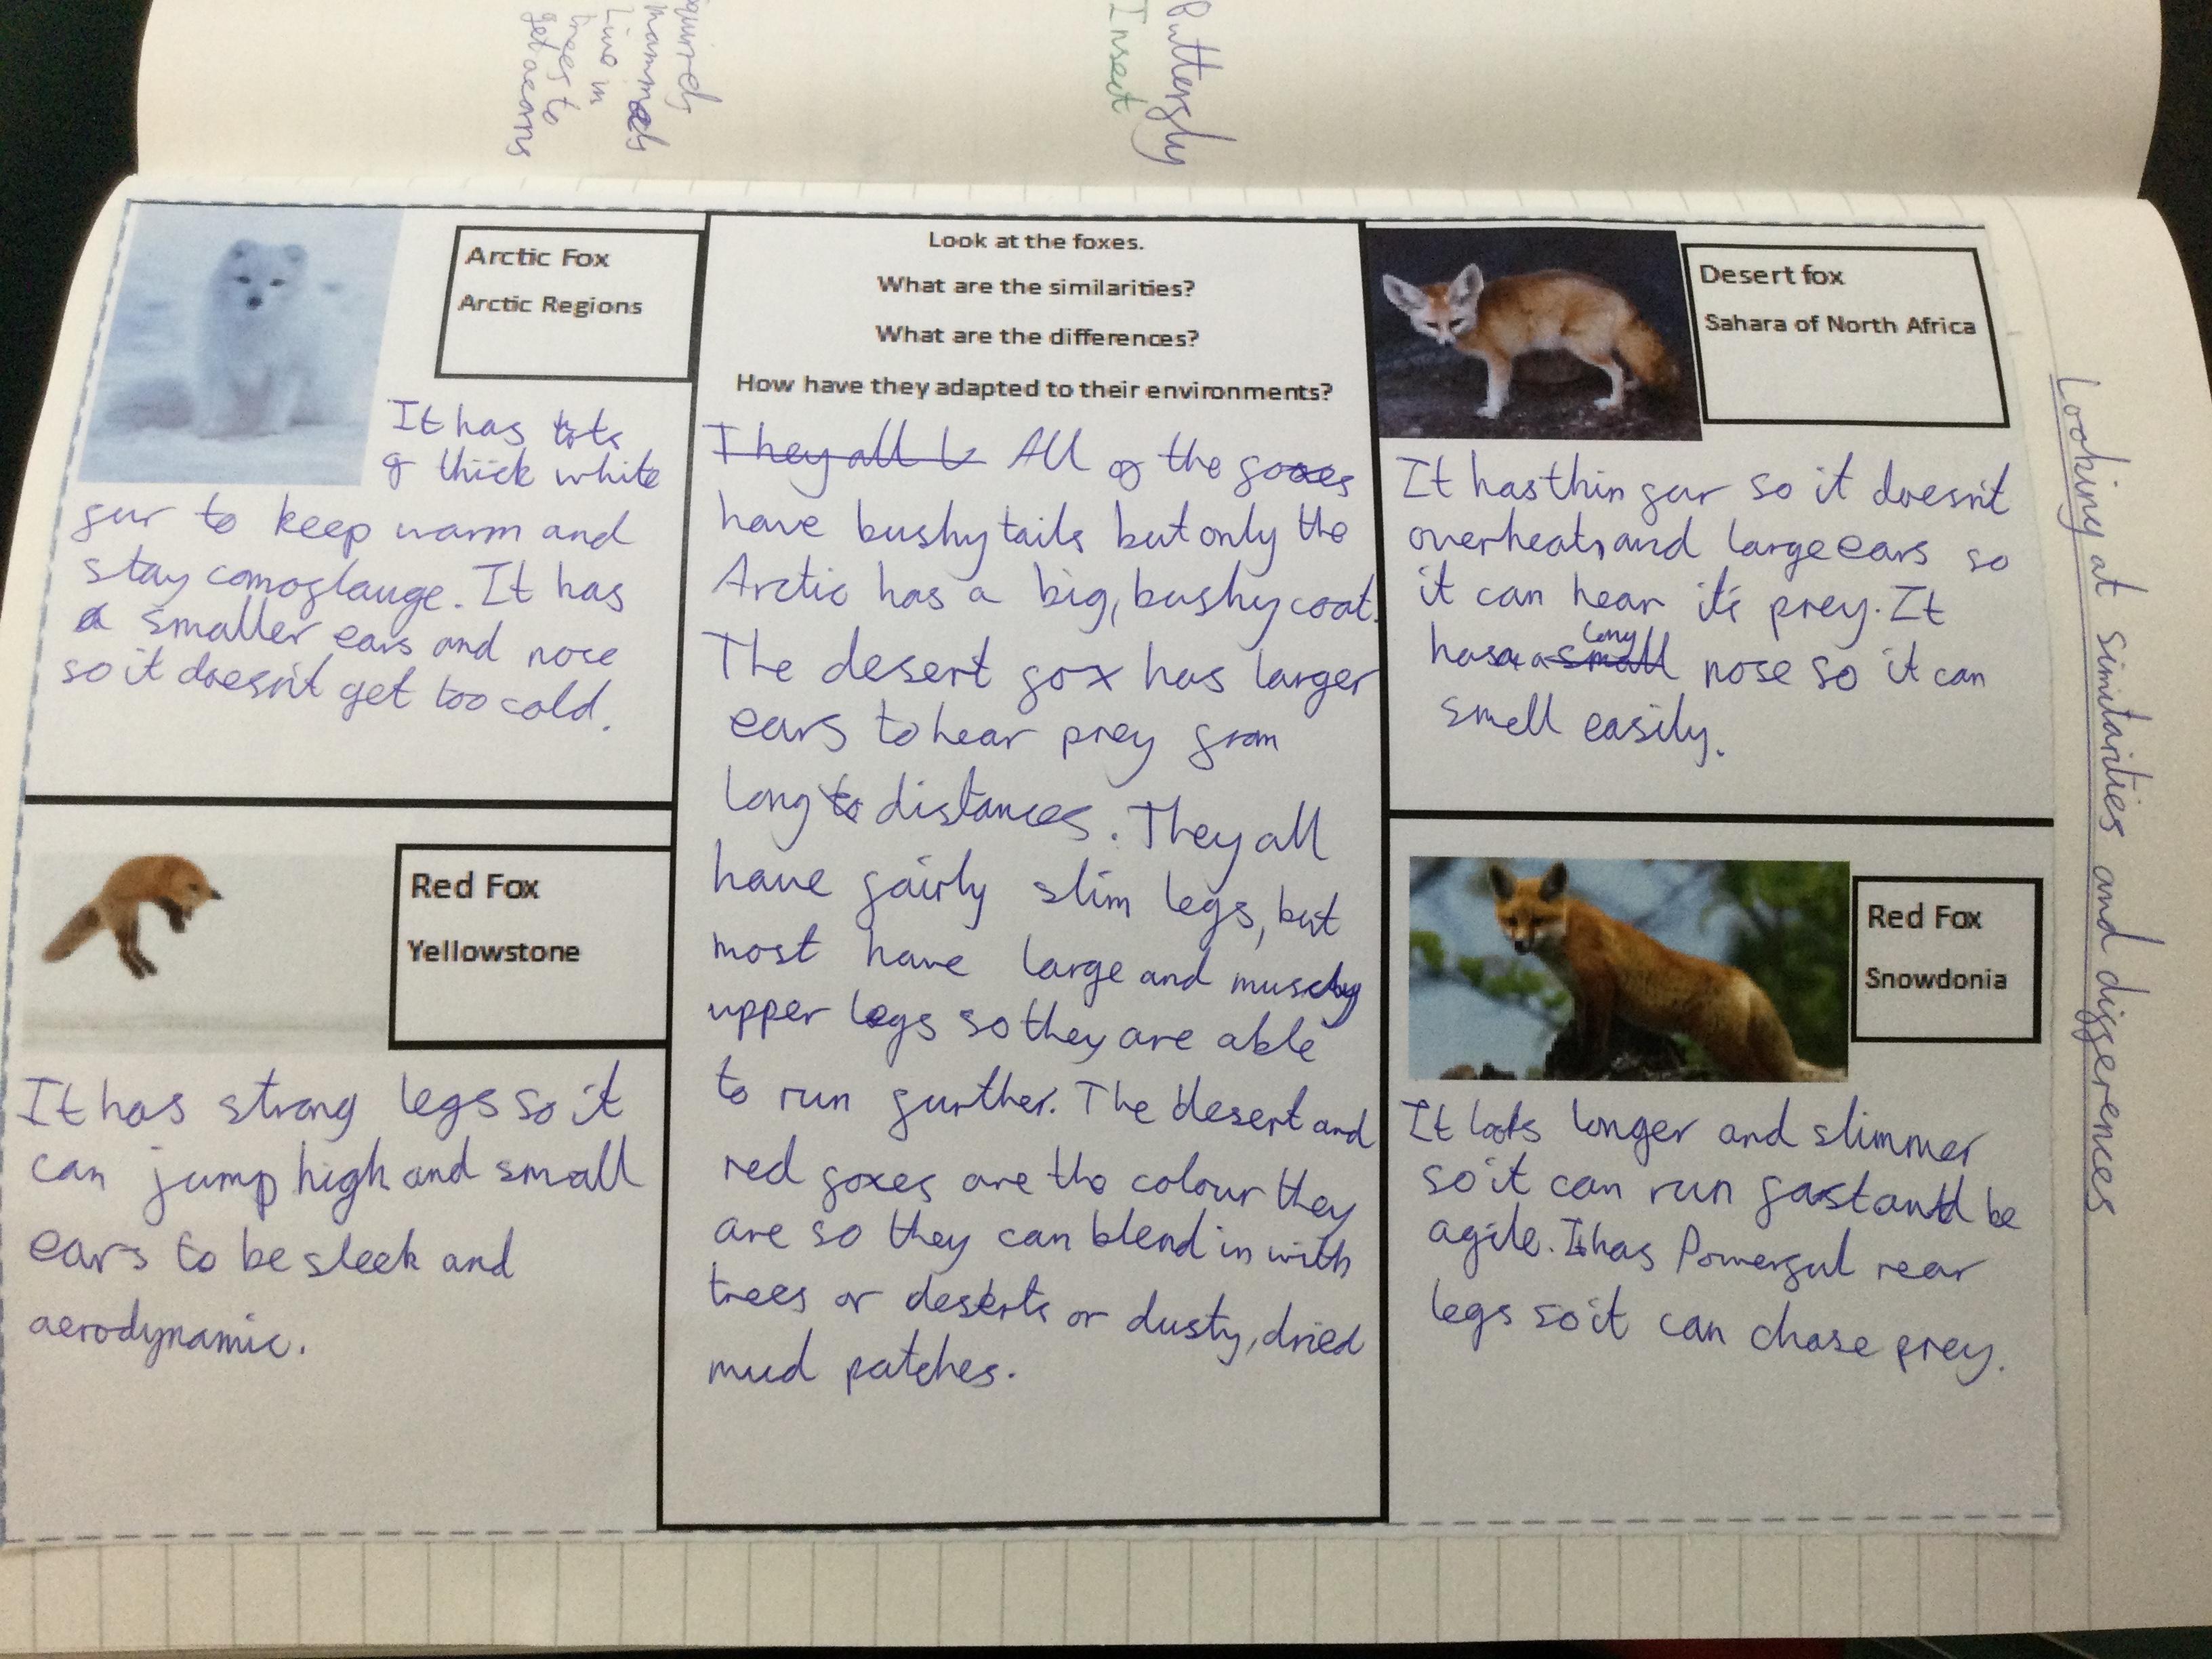 squirrels
mammals
Live in
trees to
get acorns
Butterfly
Insect
Looking at similarities and differences
Arctic Fox
Arctic Regions
It has lots
of thick white
fur to keep warm and
stay comoflauge. It has
a smaller ears and nose
so it doesn't get too cold.
Red Fox
Yellowstone
It has strong legs so it
can jump high and small
ears to be sleek and
aerodynamic.
Look at the foxes.
What are the similarities?
What are the differences?
How have they adapted to their environments?
They all All of the foxes
have bushy tails but only the
Arctic has a big, bushy coat.
The desert fox has larger
ears to hear prey from
long to distances. They all
have fairly slim legs, but
most have large and muscly
upper legs so they are able
to run further. The desert and
red foxes are the colour they
are so they can blend in with
trees or deserts or dusty, dried
mud patches.
Desert fox
Sahara of North Africa
It has thin fur so it doesn't
overheat, and large ears so
it can hear it's prey. It
has a small long nose so it can
smell easily.
Red Fox
Snowdonia
It looks longer and slimmer
so it can run fast and be
agile. It has Powerful rear
legs so it can chase prey.